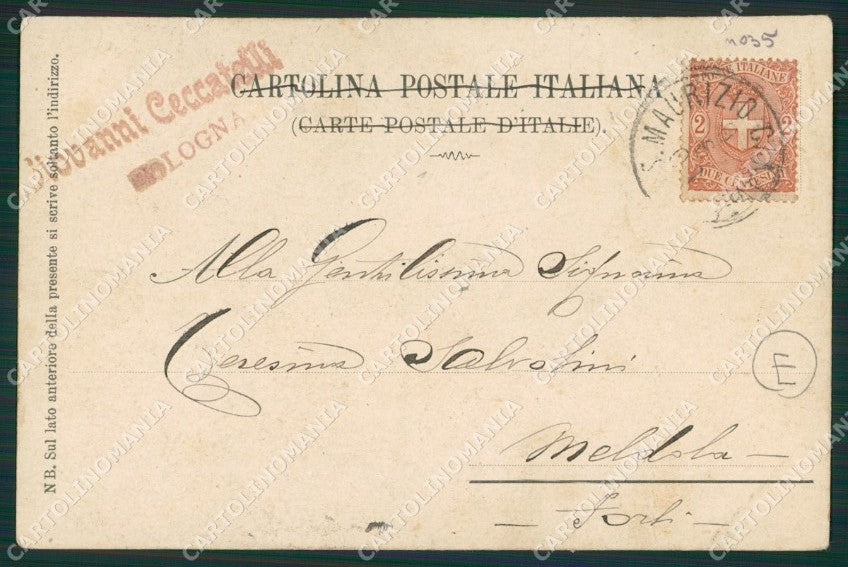 n035
Giovanni Ceccarelli
BOLOGNA
CARTOLINA POSTALE ITALIANA
(CARTE POSTALE D'ITALIE).
S. MAURIZIO
POSTE ITALIANE
2 2
DUE CENTESIMI
NB. Sul lato anteriore della presente si scrive soltanto l'indirizzo.
Alla Gentilissima Signorina
Teresina Salvolini
E
Meldola —
— Forlì —
CARTOLINOMANIA